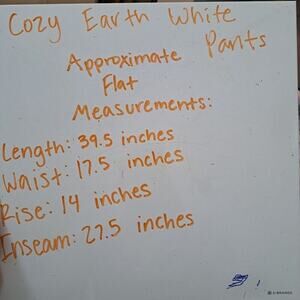 Cozy Earth White
Pants
Approximate
Flat
Measurements:
Length: 39.5 inches
Waist: 17.5 inches
Rise: 14 inches
Inseam: 27.5 inches
U BRANDS